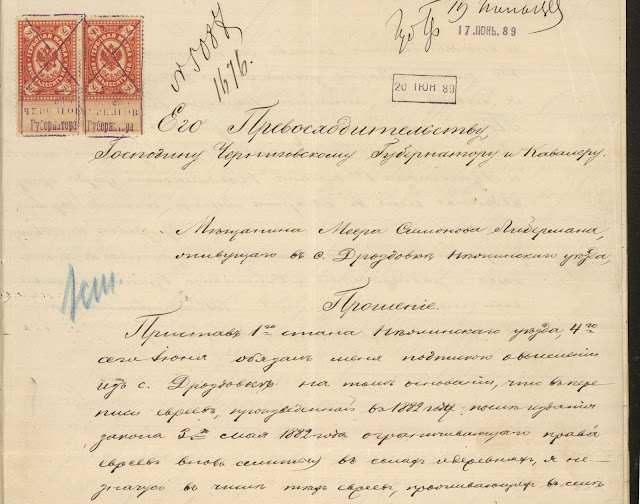 17 ІЮНЬ. 89
20 ІЮН 89
№ 5088
1676.
Губернатора Губернатора
Его Превосходительству,
Господину Черниговскому Губернатору и Кавалеру.
Мѣщанина Меера Симонова Либермана,
живущаго въ с. Дроздовкѣ Нѣжинскаго уѣзда,
1 ст.
Прошеніе.
Приставъ 1го стана Нѣжинскаго уѣзда, 4го
сего Іюня обязалъ меня подпискою о выселеніи
изъ с. Дроздовки на томъ основаніи, что въ пере
писи евреевъ, произведенной въ 1882 году послѣ изданія
закона 3го мая 1882 года ограничивающаго права
евреевъ вновь селиться въ селахъ и деревняхъ, я не
значусь въ числѣ тѣхъ евреевъ, проживающихъ въ семъ